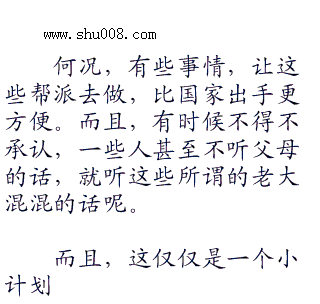 www.shu008.com
何况，有些事情，让这
些帮派去做，比国家出手更
方便。而且，有时候不得不
承认，一些人甚至不听父母
的话，就听这些所谓的老大
混混的话呢。
而且，这仅仅是一个小
计划